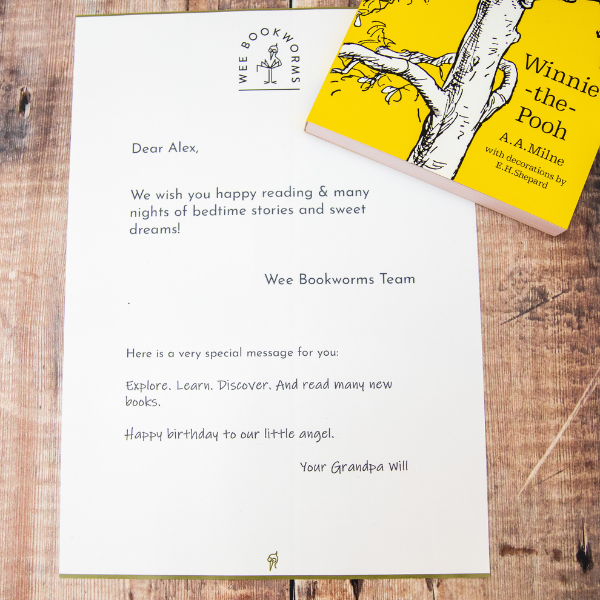 WEE BOOKWORMS
Winnie
-the-
Pooh
A.A.Milne
with decorations by
E.H.Shepard
Dear Alex,
We wish you happy reading & many
nights of bedtime stories and sweet
dreams!
Wee Bookworms Team
.
Here is a very special message for you:
Explore. Learn. Discover. And read many new
books.
Happy birthday to our little angel.
Your Grandpa Will